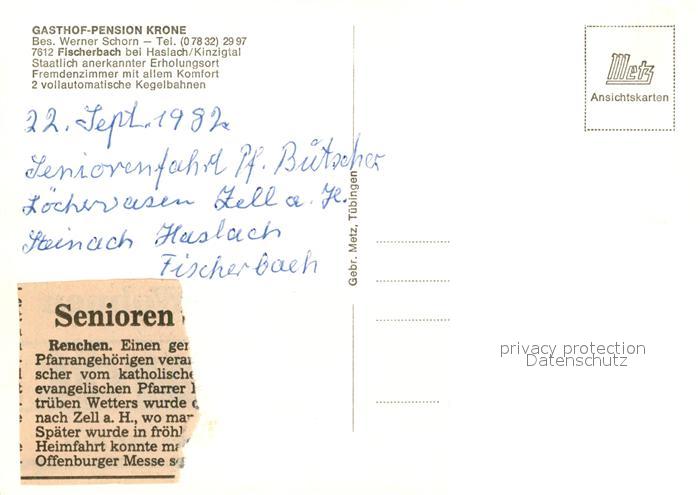 GASTHOF-PENSION KRONE
Bes. Werner Schorn – Tel. (0 78 32) 29 97
7612 Fischerbach bei Haslach/Kinzigtal
Staatlich anerkannter Erholungsort
Fremdenzimmer mit allem Komfort
2 vollautomatische Kegelbahnen
Metz
Ansichtskarten
22. Sept. 1982
Seniorenfahrt Pf. Bütscher
Löcherwasen Zell a. H.
Steinach Haslach
Fischerbach
Gebr. Metz, Tübingen
Senioren
Renchen. Einen ger
Pfarrangehörigen veran
scher vom katholische
evangelischen Pfarrer
trüben Wetters wurde
nach Zell a. H., wo mar
Später wurde in fröhl
Heimfahrt konnte ma
Offenburger Messe
privacy protection
Datenschutz